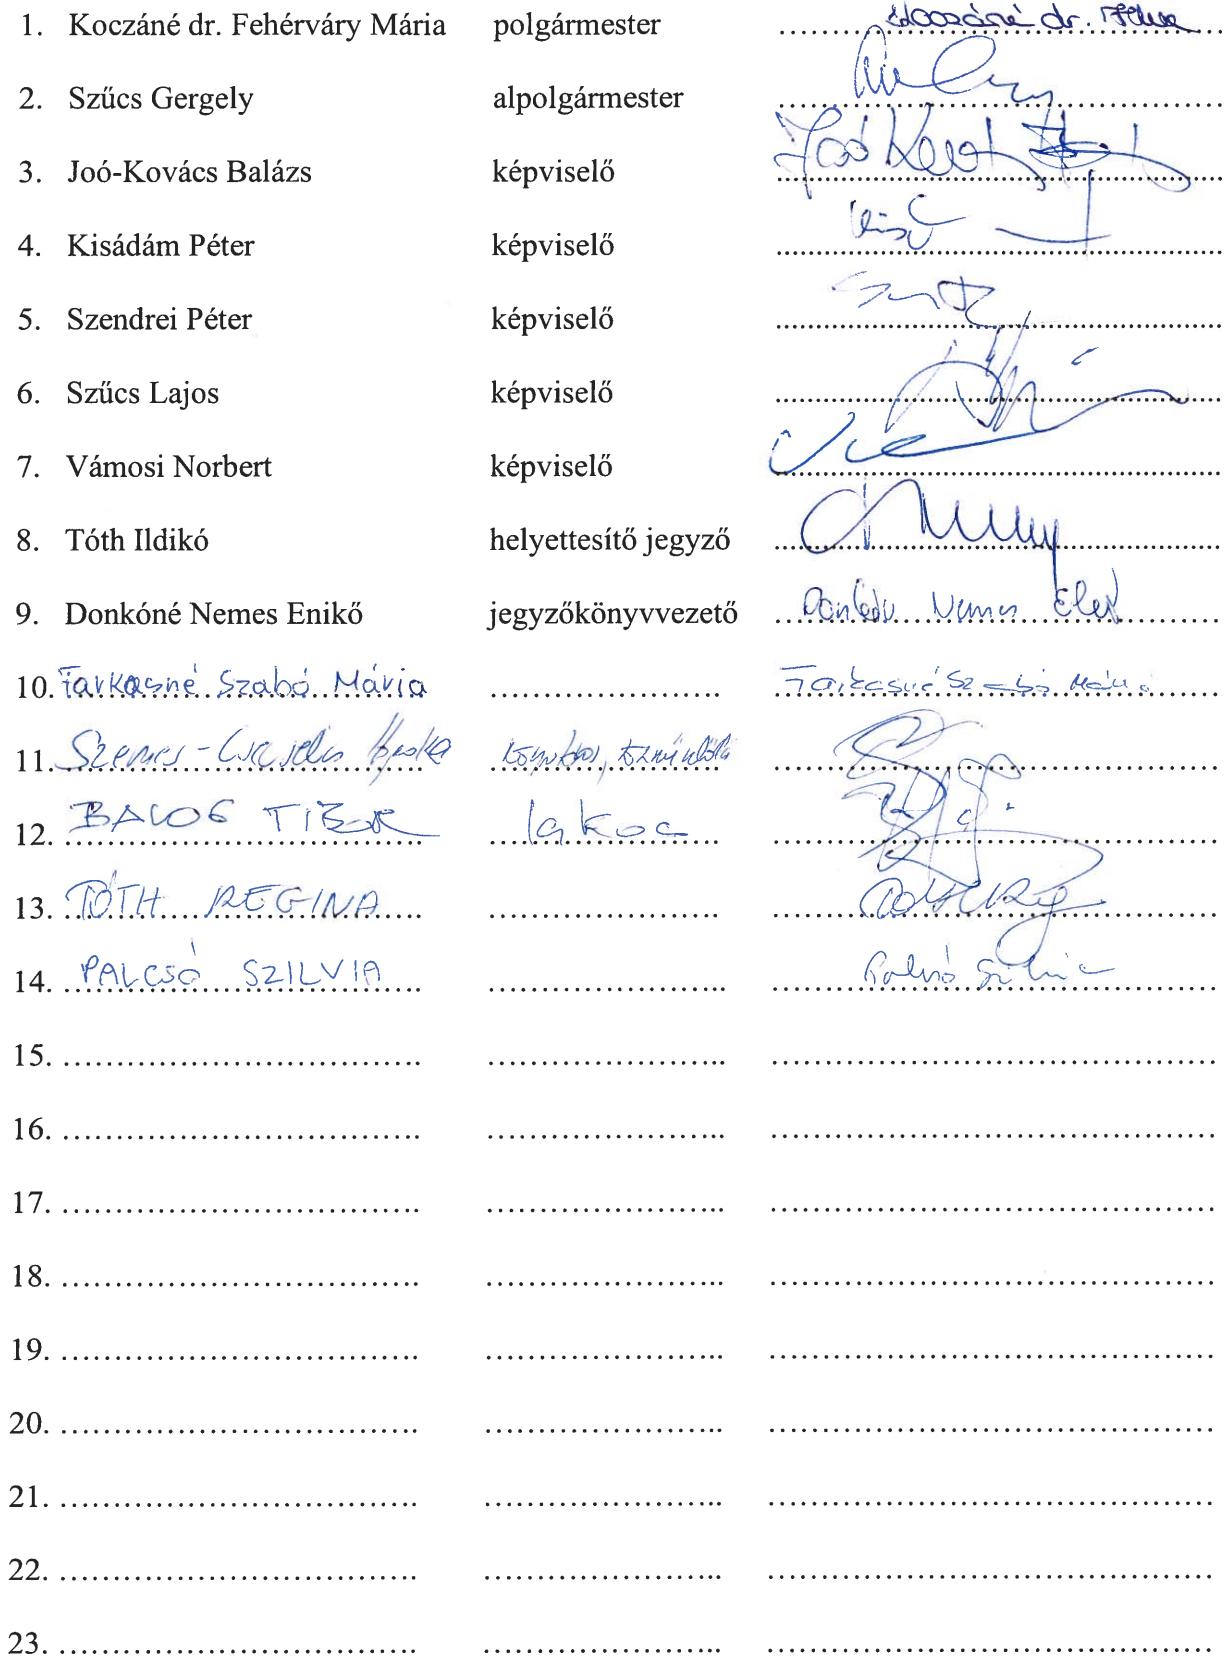 1. Koczáné dr. Fehérváry Mária polgármester Koczáné dr.
2. Szűcs Gergely alpolgármester
3. Joó-Kovács Balázs képviselő
4. Kisádám Péter képviselő
5. Szendrei Péter képviselő
6. Szűcs Lajos képviselő
7. Vámosi Norbert képviselő
8. Tóth Ildikó helyettesítő jegyző
9. Donkóné Nemes Enikő jegyzőkönyvvezető Nemes
10. Farkasné Szabó Mária Farkasné Szabó Mária
11. Szemes-
12. BALOG TIBOR lakos
13. TÓTH REGINA
14. PALCSÓ SZILVIA Palcsó Szilvia
15.
16.
17.
18.
19.
20.
21.
22.
23.